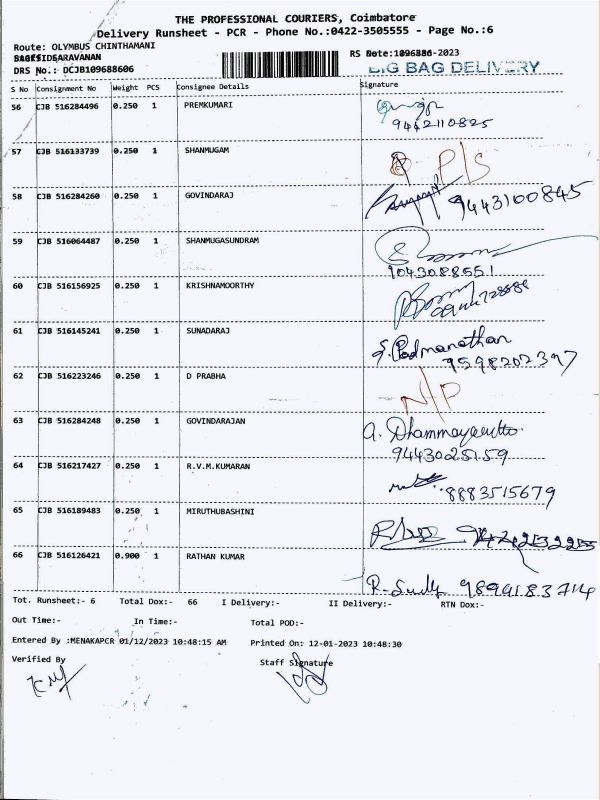 THE PROFESSIONAL COURIERS, Coimbatore
Delivery Runsheet - PCR - Phone No.:0422-3505555 - Page No.:6
Route: OLYMBUS CHINTHAMANI
DRS No.: DCJB109688606
BIG BAG DELIVERY
S No Consignment No Weight PCS Consignee Details Signature
56 CJB 516284496 0.250 1 PREMKUMARI
9442110825
57 CJB 516133739 0.250 1 SHANMUGAM P/S
58 CJB 516284260 0.250 1 GOVINDARAJ 9443100845
59 CJB 516064487 0.250 1 SHANMUGASUNDRAM
9043088551
60 CJB 516156925 0.250 1 KRISHNAMOORTHY
61 CJB 516145241 0.250 1 SUNADARAJ S. Padmanathan
9598202397
62 CJB 516223246 0.250 1 D PRABHA N/P
63 CJB 516284248 0.250 1 GOVINDARAJAN A.
9443025159
64 CJB 516217427 0.250 1 R.V.M.KUMARAN
8883515679
65 CJB 516189483 0.250 1 MIRUTHUBASHINI
66 CJB 516126421 0.900 1 RATHAN KUMAR
9894183714
Tot. Runsheet:- 6 Total Dox:- 66 I Delivery:- II Delivery:- RTN Dox:-
Out Time:- In Time:- Total POD:-
Entered By :MENAKAPCR 01/12/2023 10:48:15 AM Printed On: 12-01-2023 10:48:30
Verified By Staff Signature